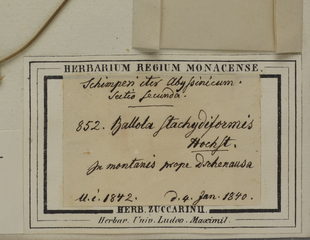 HERBARIUM REGIUM MONACENSE.
Schimperi iter Abyssinicum.
Sectio secunda.
852. Ballota stachydiformis
Hochst.
In montanis prope Dschenausa
U. i. 1842. d. 4. Jan. 1840.
HERB. ZUCCARINII.
Herbar. Univ. Ludov. Maximil.